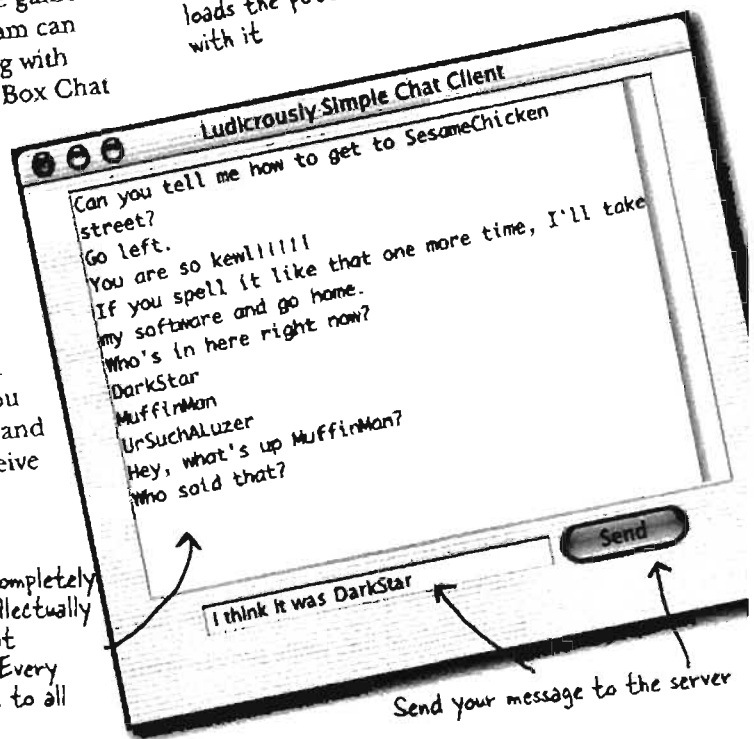 am can
g with
Box Chat
loads the
with it
Ludicrously Simple Chat Client
Can you tell me how to get to SesameChicken
street?
Go left.
You are so kewl!!!!!!
If you spell it like that one more time, I'll take
my software and go home.
Who's in here right now?
DarkStar
MuffinMan
UrSuchALuzer
Hey, what's up MuffinMan?
Who said that?
I think it was DarkStar
Send
ou
and
eive
ompletely
llectually
t
Every
to all
Send your message to the server